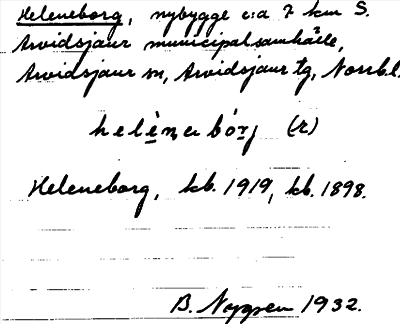 Heleneborg, nybygge c:a 7 km S.
Arvidsjaur municipalsamhälle,
Arvidsjaur sn, Arvidsjaur tg, Norrb.l.
(r)
Heleneborg, kb. 1919, kb. 1898.
B. Nygren 1932.